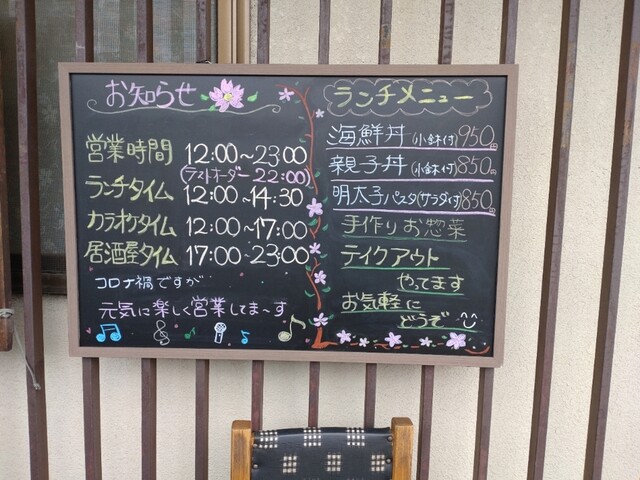 お知らせ
営業時間 12:00〜23:00
(ラストオーダー 22:00)
ランチタイム 12:00〜14:30
カラオケタイム 12:00〜17:00
居酒屋タイム 17:00〜23:00
コロナ禍ですが
元気に楽しく営業してま〜す
ランチメニュー
海鮮丼(小鉢付)950円
親子丼(小鉢付)850円
明太子パスタ(サラダ付)850円
手作りお惣菜
テイクアウト
やってます
お気軽に
どうぞ